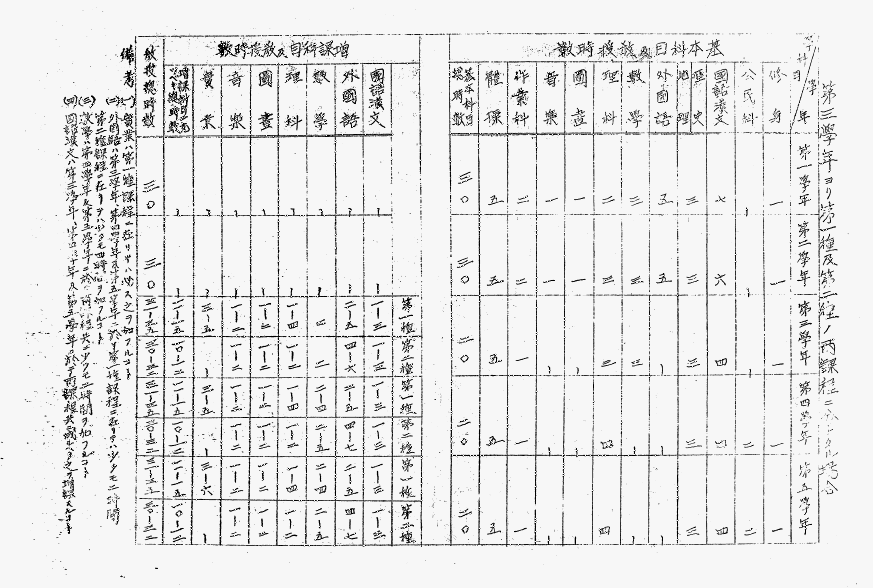 第三學年ヨリ第一種及第二種ノ兩課程ニ分チタル場合
學年
第一學年 第二學年 第三學年 第四學年 第五學年
基本科目及敎授時數
修身 一 一 一 一 一
公民科 二 二
國語漢文 七 六 四 四 四
歷史 地理 三 三 三 三 三
外國語 五 五
數學 三 三 三
理科 二 三 三 四 四
圖畫 一 一
音樂 一 一
作業科 二 二 一 一 一
體操 五 五 五 五 五
基本科目總時數 三〇 三〇 二〇 二〇 二〇
增課科目及敎授時數
第一種 第二種 第一種 第二種 第一種 第二種
國語漢文 一—三 一—三 一—三 一—三 一—三 一—三
外國語 二—五 四—六 二—五 四—七 二—五 四—七
數學 二 二 二—四 二—五 二—四 二—五
理科 一—四 一—二 一—四 一—二 一—四 一—二
圖畫 一—二 一—二 一—二 一—二 一—二 一—二
音樂 一—二 一—二 一—二 一—二 一—二 一—二
實業 三—五 三—五 三—六
增課科目ニ充ツベキ總時數 一一—一五 一〇—一二 一一—一五 一〇—一二 一一—一五 一〇—一二
敎授總時數 三〇 三〇 三一—三五 三〇—三二 三一—三五 三〇—三二 三一—三五 三〇—三二
備考
(一) 實業ハ第一種課程ニ在リテハ必ス之ヲ加フルコト
(二) 外國語ハ第三學年第四學年及第五學年ニ於テ第一種課程ニ在リテハ少クモ二時間
第二種課程ニ在リテハ少クモ四時間ヲ加フルコト
(三) 數學ハ第四學年及第五學年ニ於テ兩課程共ニ少クモ二時間ヲ加フルコト
(四) 國語漢文ハ第三學年、第四學年及第五學年ニ於テ兩課程共成ルベク之ヲ增課スルコト